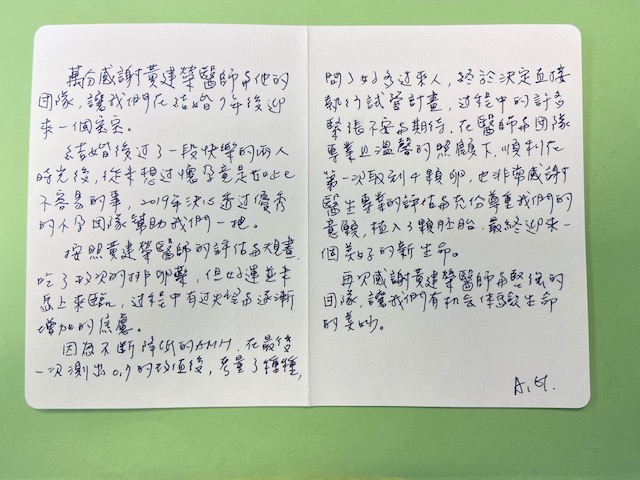 萬分感謝黃建榮醫師與他的
團隊，讓我們在結婚7年後迎
來一個寶寶。
結婚後過了一段快樂的兩人
時光後，從未想過懷孕竟是如此
不容易的事，2019年決心透過優秀
的不孕團隊幫助我們一把。
按照黃建榮醫師的評估與規畫，
吃了數次的排卵藥，但好運並未
馬上來臨，過程中有過失望與逐漸
增加的焦慮。
因為不斷降低的AMH，在最後
一次測出0.9的數值後，考量了種種，
問了好多過來人，終於決定直接
執行試管計畫，過程中的許多
緊張不安與期待，在醫師與團隊
專業且溫馨的照顧下，順利在
第一次取到4顆卵，也非常感謝
醫生專業的評估與充份尊重我們的
意願，植入3顆胚胎，最終迎來一
個美好的新生命。
再次感謝黃建榮醫師與堅強的
團隊，讓我們有机会体驗生命
的美妙。